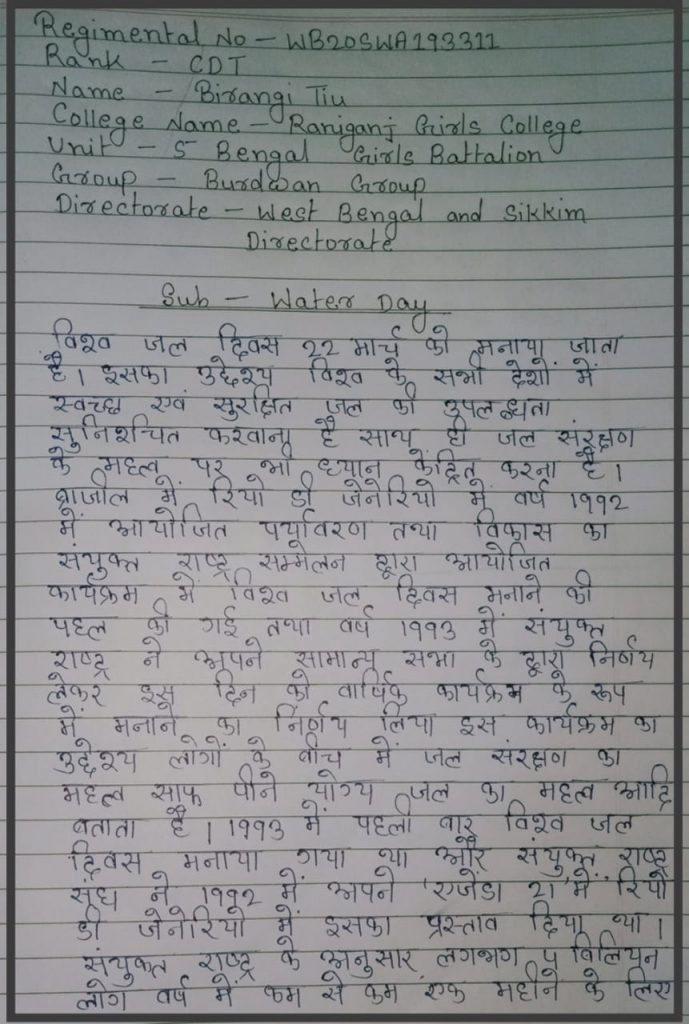 Regimental No - WB20SWA193311
Rank - CDT
Name - Birangi Tiu
College Name - Raniganj Girls College
Unit - 5 Bengal Girls Battalion
Group - Burdwan Group
Directorate - West Bengal and Sikkim
Directorate
Sub - Water Day
विश्व जल दिवस 22 मार्च को मनाया जाता
है। इसका उद्देश्य विश्व के सभी देशों में
स्वच्छ एवं सुरक्षित जल की उपलब्धता
सुनिश्चित करवाना है साथ ही जल संरक्षण
के महत्व पर भी ध्यान केंद्रित करना है।
ब्राजील में रियो डी जेनेरियो में वर्ष 1992
में आयोजित पर्यावरण तथा विकास का
संयुक्त राष्ट्र सम्मेलन द्वारा आयोजित
कार्यक्रम में विश्व जल दिवस मनाने की
पहल की गई तथा वर्ष 1993 में संयुक्त
राष्ट्र ने अपने सामान्य सभा के द्वारा निर्णय
लेकर इस दिन को वार्षिक कार्यक्रम के रूप
में मनाने का निर्णय लिया इस कार्यक्रम का
उद्देश्य लोगों के बीच में जल संरक्षण का
महत्व साफ पीने योग्य जल का महत्व आदि
बताता है। 1993 में पहली बार विश्व जल
दिवस मनाया गया था और संयुक्त राष्ट्र
संघ ने 1992 में अपने 'एजेंडा 21' में रियो
डी जेनेरियो में इसका प्रस्ताव दिया था।
संयुक्त राष्ट्र के अनुसार लगभग 4 बिलियन
लोग वर्ष में कम से कम एक महीने के लिए